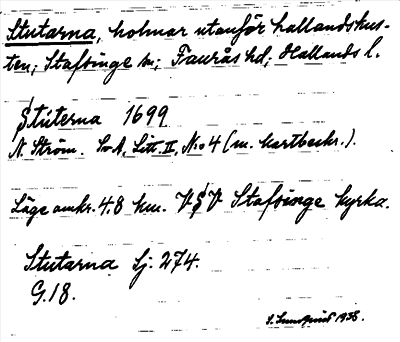 Stutarna, holmar utanför hallandskus-
ten; Stafsinge sn; Faurås hd; Hallands l.
Stúterna 1699
N. Ström. SvA, Litt. II, No 4 (m. kartbeskr.).
Läge omkr. 4,8 km. VSV Stafsinge kyrka.
Stutarna Sj. 274.
G.18.
1938.